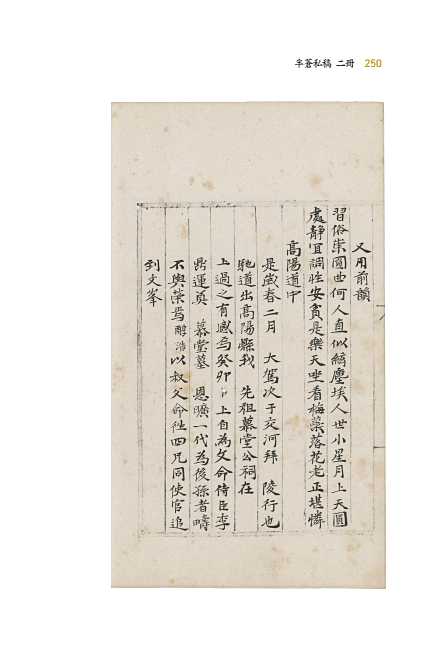 半蒼私稿 二冊 250
又用前韻
習俗崇圓曲何人直似繩塵埃人世小星月上天圓
處靜宜調性安貧是樂天坐看梅蘂落花老正堪憐
高陽道中
是歲春二月 大駕次于交河拜 陵行也
馳道出高陽縣我 先祖慕堂公祠在
上過之有感焉癸卯 上自為文命侍臣李
鼎運奠 慕堂墓 恩曠一代為後孫者疇
不與榮焉醇浩以叔父命往四凡同使官追
到文峯